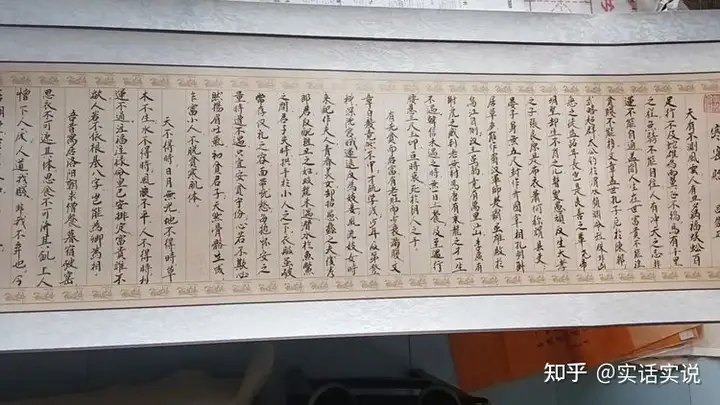 天有不测風雲人有旦夕禍福蜈蚣百
足行不及蛇雄鸡兩翼飛不過鴉馬有千里
之程无骑不能自往人有冲天之志非
運不能自通盖聞人生在世富貴不能淫
貧賤不能移文章盖世孔子厄於陳邦
武略超群太公钓於渭水颜渊命短殊非凶
恶之徒盗跖年長岂是良善之辈尧帝
明聖却生不肖之兒瞽叟愚顽反生大孝
之子張良原是布衣萧何称谓县吏
晏子身無五尺封作齐國宰相孔明卧
居草庐能作蜀漢軍師楚霸虽雄敗於
烏江自刎漢王虽弱竟有萬里江山李廣有
射虎之威到老无封馮唐有乘龍之才一生
不遇韓信未遇之時無日三餐及至遇行
腰悬三尺玉印一旦時衰死於阴人之手
有先貧而后富有老壮而少衰滿腹文
章白髮竟然不中才疏学浅少年及第登
科深院宫娥運退反為妓妾风流妓女時
来配作夫人青春美女却招愚蠢之夫俊秀
郎君反配粗丑之妇蛟龍未遇潜身於魚鱉
之間君子失時拱手於小人之下衣服虽破
常存仪礼之容面带忧愁每抱怀安之
量時遭不遇只宜安貧守份心若不欺必
然揚眉吐氣初貧君子天然骨骼生成
乍富小人不脱貧寒肌体
天不得時日月無光地不得時草
木不生水不得時風浪不平人不得時利
運不通注福注禄命里已安排定富貴誰不
欲人若不依根基八字岂能為卿為相
吾昔寓居洛阳朝求僧餐暮宿破窑
思衣不可遮其体思食不可濟其飢上人
憎下人厌人道我賤非我不弃也今
知乎 @实话实说